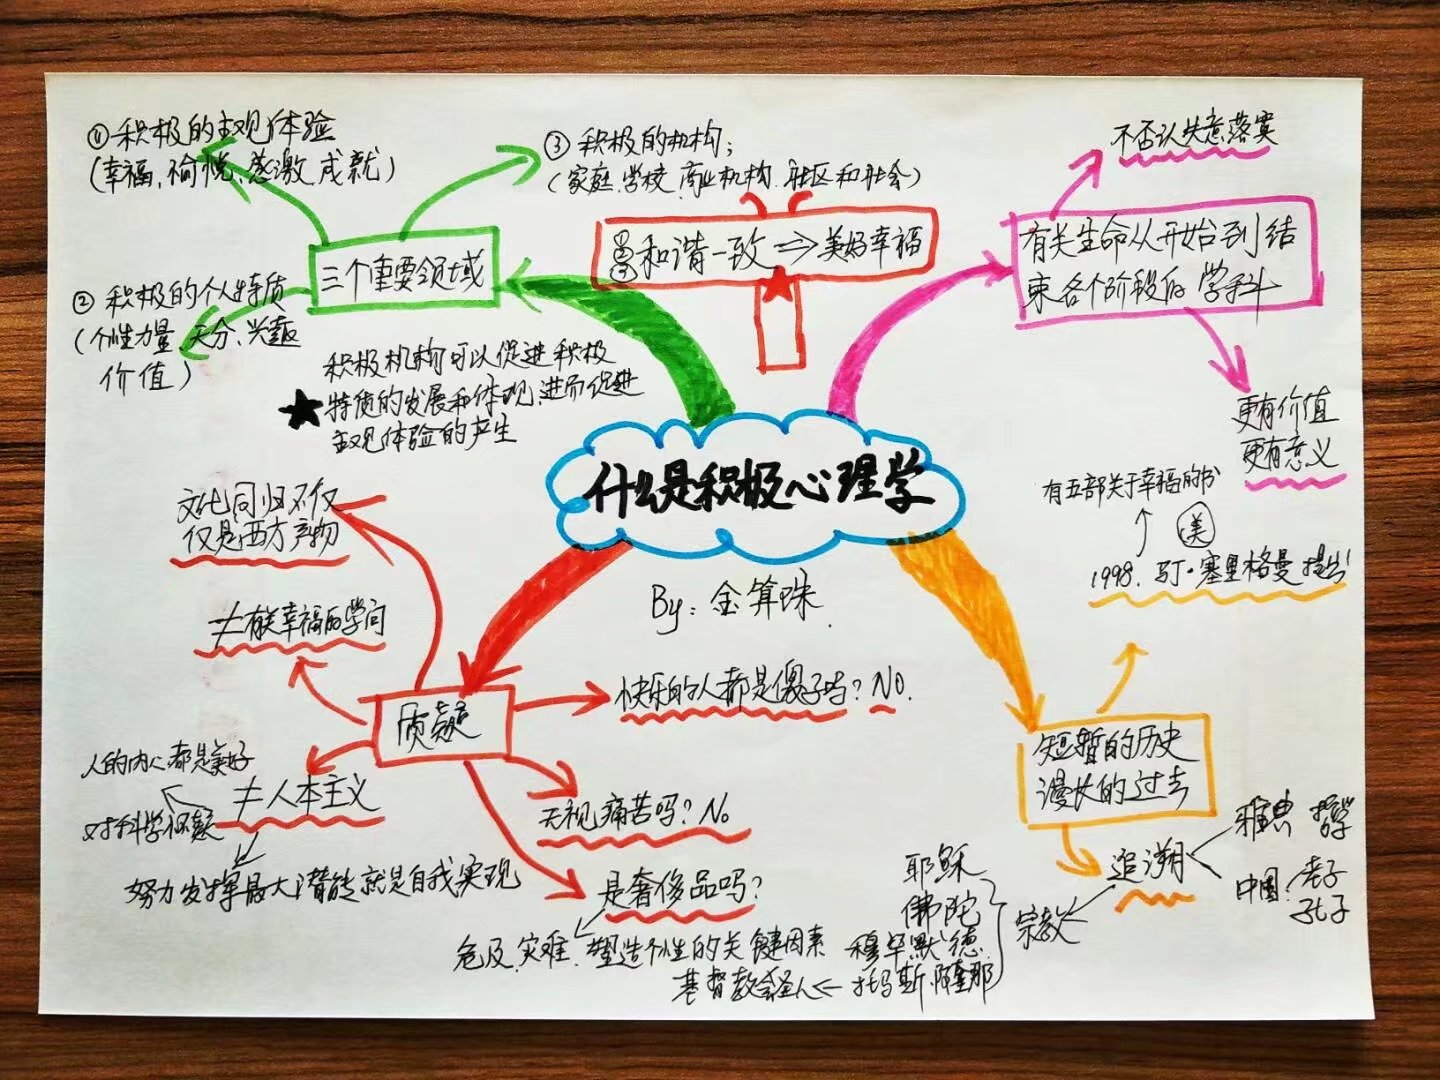 什么是积极心理学
By：金算珠
有关生命从开始到结
束各个阶段的学科
不否认失意落寞
更有价值
更有意义
短暂的历史
漫长的过去
1998.马丁·塞里格曼提出
美
有五部关于幸福的书
追溯
雅典 哲学
中国：老子
孔子
宗教
耶稣
佛陀
穆罕默德
托玛斯.阿奎那
基督教会圣人
质疑
文化同归不仅
仅是西方产物
≠有关幸福的学问
≠人本主义
人的内心都是美好
对科学怀疑
努力发挥最大潜能就是自我实现
快乐的人都是傻子吗？No.
无视痛苦吗？No
是奢侈品吗？
危及.灾难.塑造个性的关键因素
三个重要领域
①积极的主观体验
（幸福、愉悦、感激、成就）
②积极的个人特质
（个性力量、天分、兴趣
价值）
③积极的机构；
（家庭.学校.商业机构.社区和社会）
★积极机构可以促进积极
特质的发展和体现，进而促进
主观体验的产生
①②③和谐一致⇒美好幸福